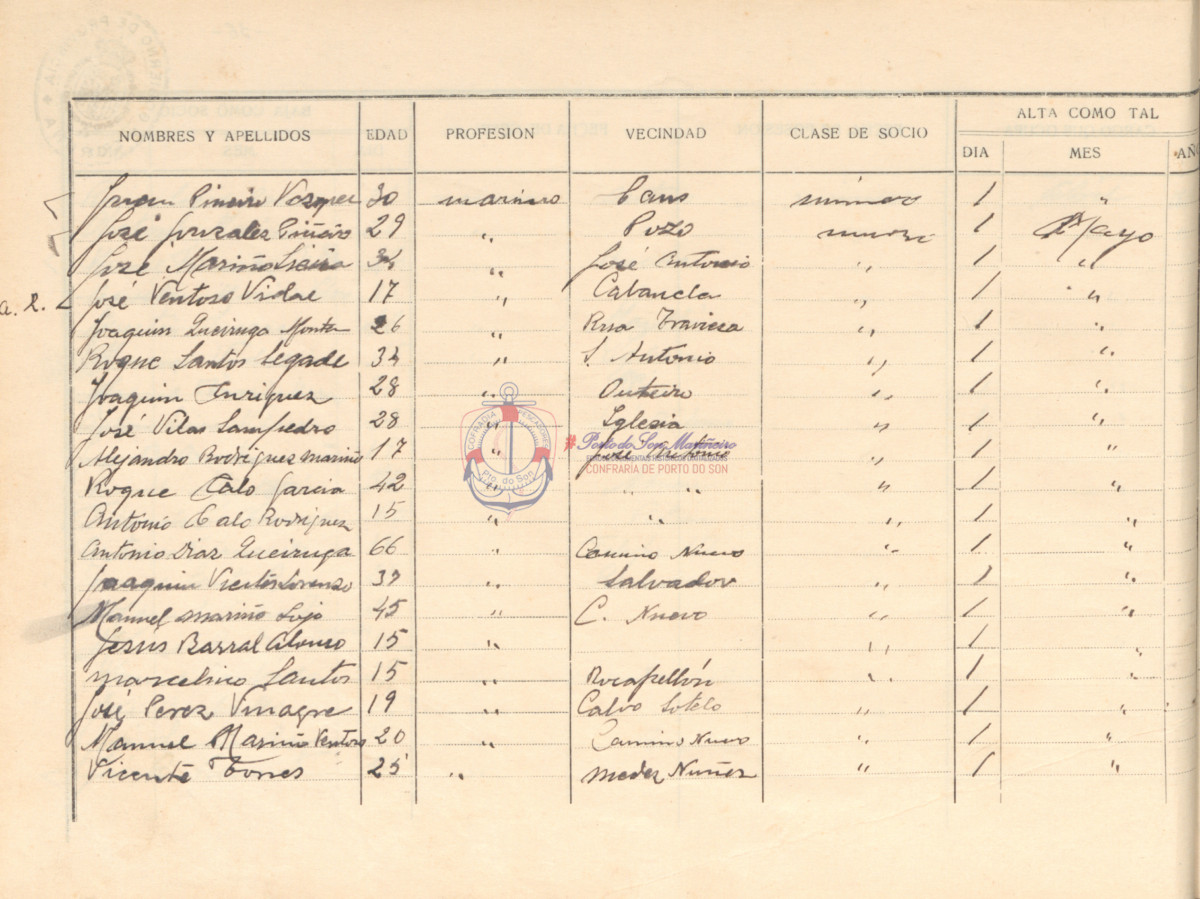 ALTA COMO TAL
NOMBRES Y APELLIDOS EDAD PROFESION VECINDAD CLASE DE SOCIO DIA MES AÑO
Juan Pineiro Vazquez 30 marinero 1 "
José Gonzalez Piñeiro 29 " Pozo 1 Mayo
José Mariño 34 " José Antonio " 1 "
a. R. José Ventoso Vidal 17 " Cabancla " 1 "
Joaquin Queiruga 26 " Rua Traviesa " 1 "
Roque Santos Segade 34 " S. Antonio " 1 "
Joaquin Enriquez 28 " Outeiro " 1 "
José Vilas Sampedro 28 " Iglesia " 1 "
Alejandro Rodriguez Mariño 17 " José Antonio " 1 "
Roque Calo Garcia 42 " " " " 1 "
Antonio Calo Rodriguez 15 " " " 1 "
Antonio Diaz Queiruga 66 " Camino Nuevo " 1 "
Joaquin Lorenzo " Salvador " 1 "
Manuel mariño Lojo 45 " C. Nuevo " 1 "
Jesús Barral Alonso 15 " " 1 "
marcelino Santos 15 " Rocapellón " 1 "
José Perez Vinagre 19 " Calvo Sotelo " 1 "
Manuel Mariño Ventoso 20 " Camino Nuevo " 1 "
Vicente Torres 25 " Medez Nuñez " 1 "
COFRADIA PESCADORES
Pto. do Son
#Porto do Son Mariñeiro
CONFRARÍA DE PORTO DO SON